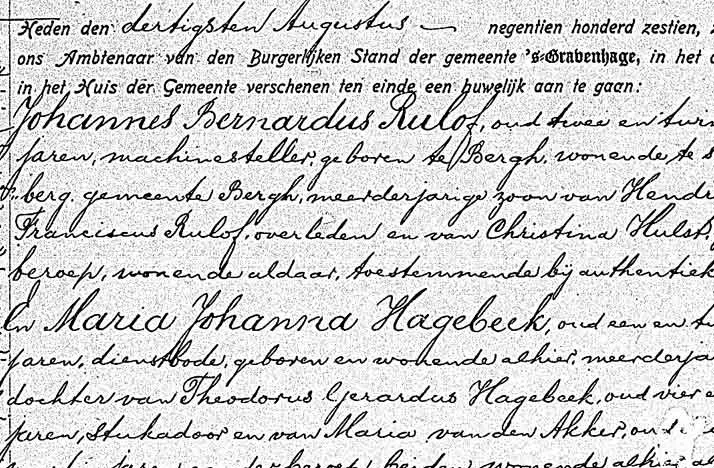 Heden den dertigsten Augustus — negentien honderd zestien,
ons Ambtenaar van den Burgerlijken Stand der gemeente 's-Gravenhage, in het
in het Huis der Gemeente verschenen ten einde een huwelijk aan te gaan:
Johannes Bernardus Rulof, oud twee en twin
jaren, machinesteller, geboren te Bergh, wonende te s
berg, gemeente Bergh, meerderjarige zoon van Hendr
Franciscus Rulof, overleden en van Christina Hulsh
beroep, wonende aldaar, toestemmende bij authentiek
En Maria Johanna Hagebeek, oud een en tw
jaren, dienstbode, geboren en wonende alhier, meerderja
dochter van Theodorus Gerardus Hagebeek, oud vier e
jaren, stukadoor en van Maria van den Akker, oud
jaren, zonder beroep, beiden wonende alhier